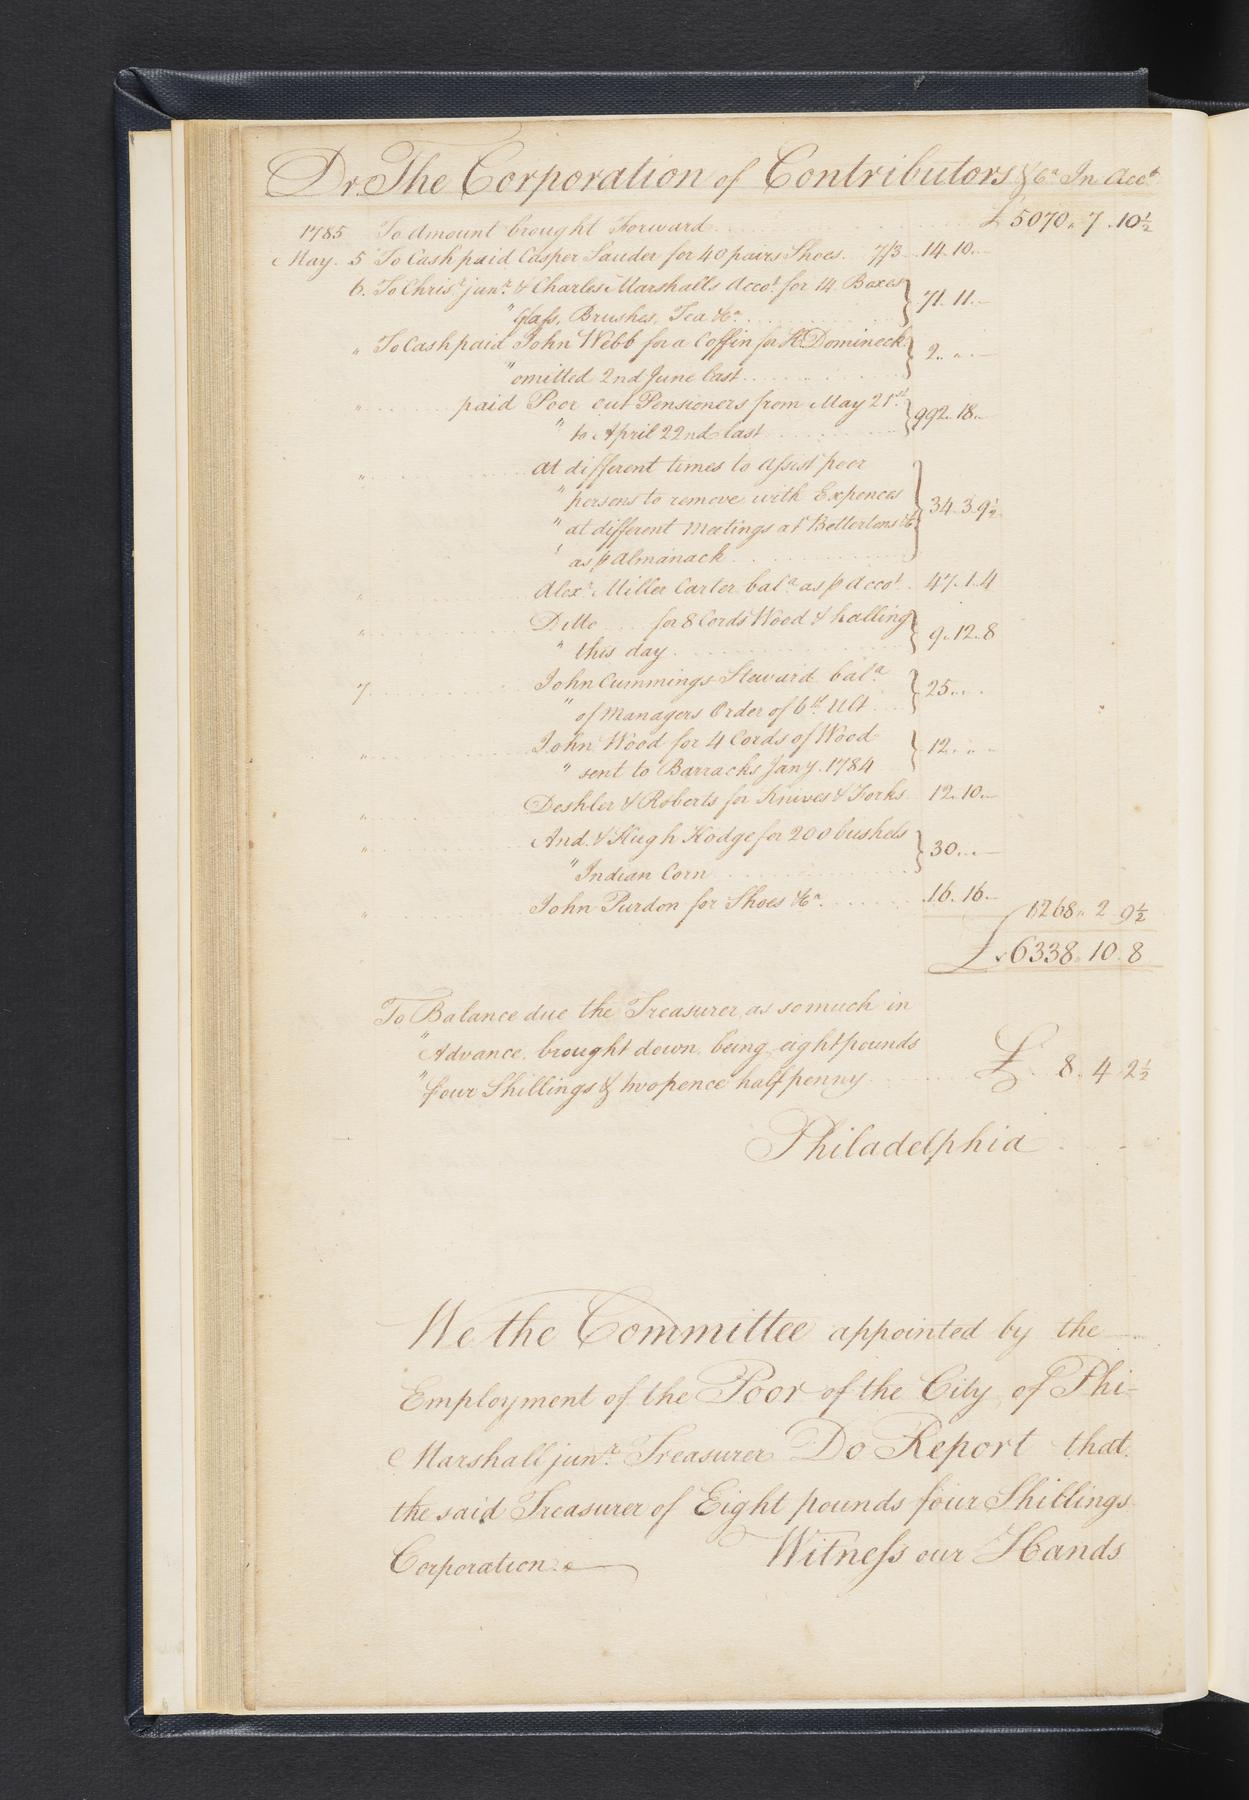 Dr. The Corporation of Contributors &Ca In Acct
1785 To Amount brought Forward £ 5070.. 7. 10½
May. 5 To Cash paid Casper Sauder for 40 pairs Shoes. 7/3 14. 10. —
6. To Christr junr. & Charles Marshalls Accot. for 14 Boxes
" Glass, Brushes, Tea &Ca. 71. 11. —
" To Cash paid John Webb for a Coffin for H Domineck
" omitted 2nd June last 2.. ". —
" paid Poor out Pensioners from May 21st
" to April 22nd last 992. 18. —
" at different times to Assist poor
" persons to remove with Expences
" at different Meetings at Bettertons &C 34. 3. 9½
" as p Almanack
" Alexr. Miller Carter bala. as p Accot 47. 1. 4
" Ditto for 8 Cords Wood & halling
" this day 9. 12. 8
7 John Cummings Steward bala.
" of Managers Order of 6th Ult 25. . .
" John Wood for 4 Cords of Wood
" sent to Barracks Jany. 1784 12. ". —
" Deshler & Roberts for Knives & Forks 12. 10. —
" And. & Hugh Hodge for 200 bushels
" Indian Corn 30. . —
" John Purdon for Shoes &Ca. 16. 16. —
1268.. 2 9½
£ 6338. 10. 8
To Balance due the Treasurer, as so much in
" Advance, brought down, being eight pounds
" four Shillings & twopence halfpenny £ 8. 4 2½
Philadelphia
We the Committee appointed by the
Employment of the Poor of the City of Phi-
Marshall junr. Treasurer Do Report that
the said Treasurer of Eight pounds four Shillings
Corporation. Witness our Hands